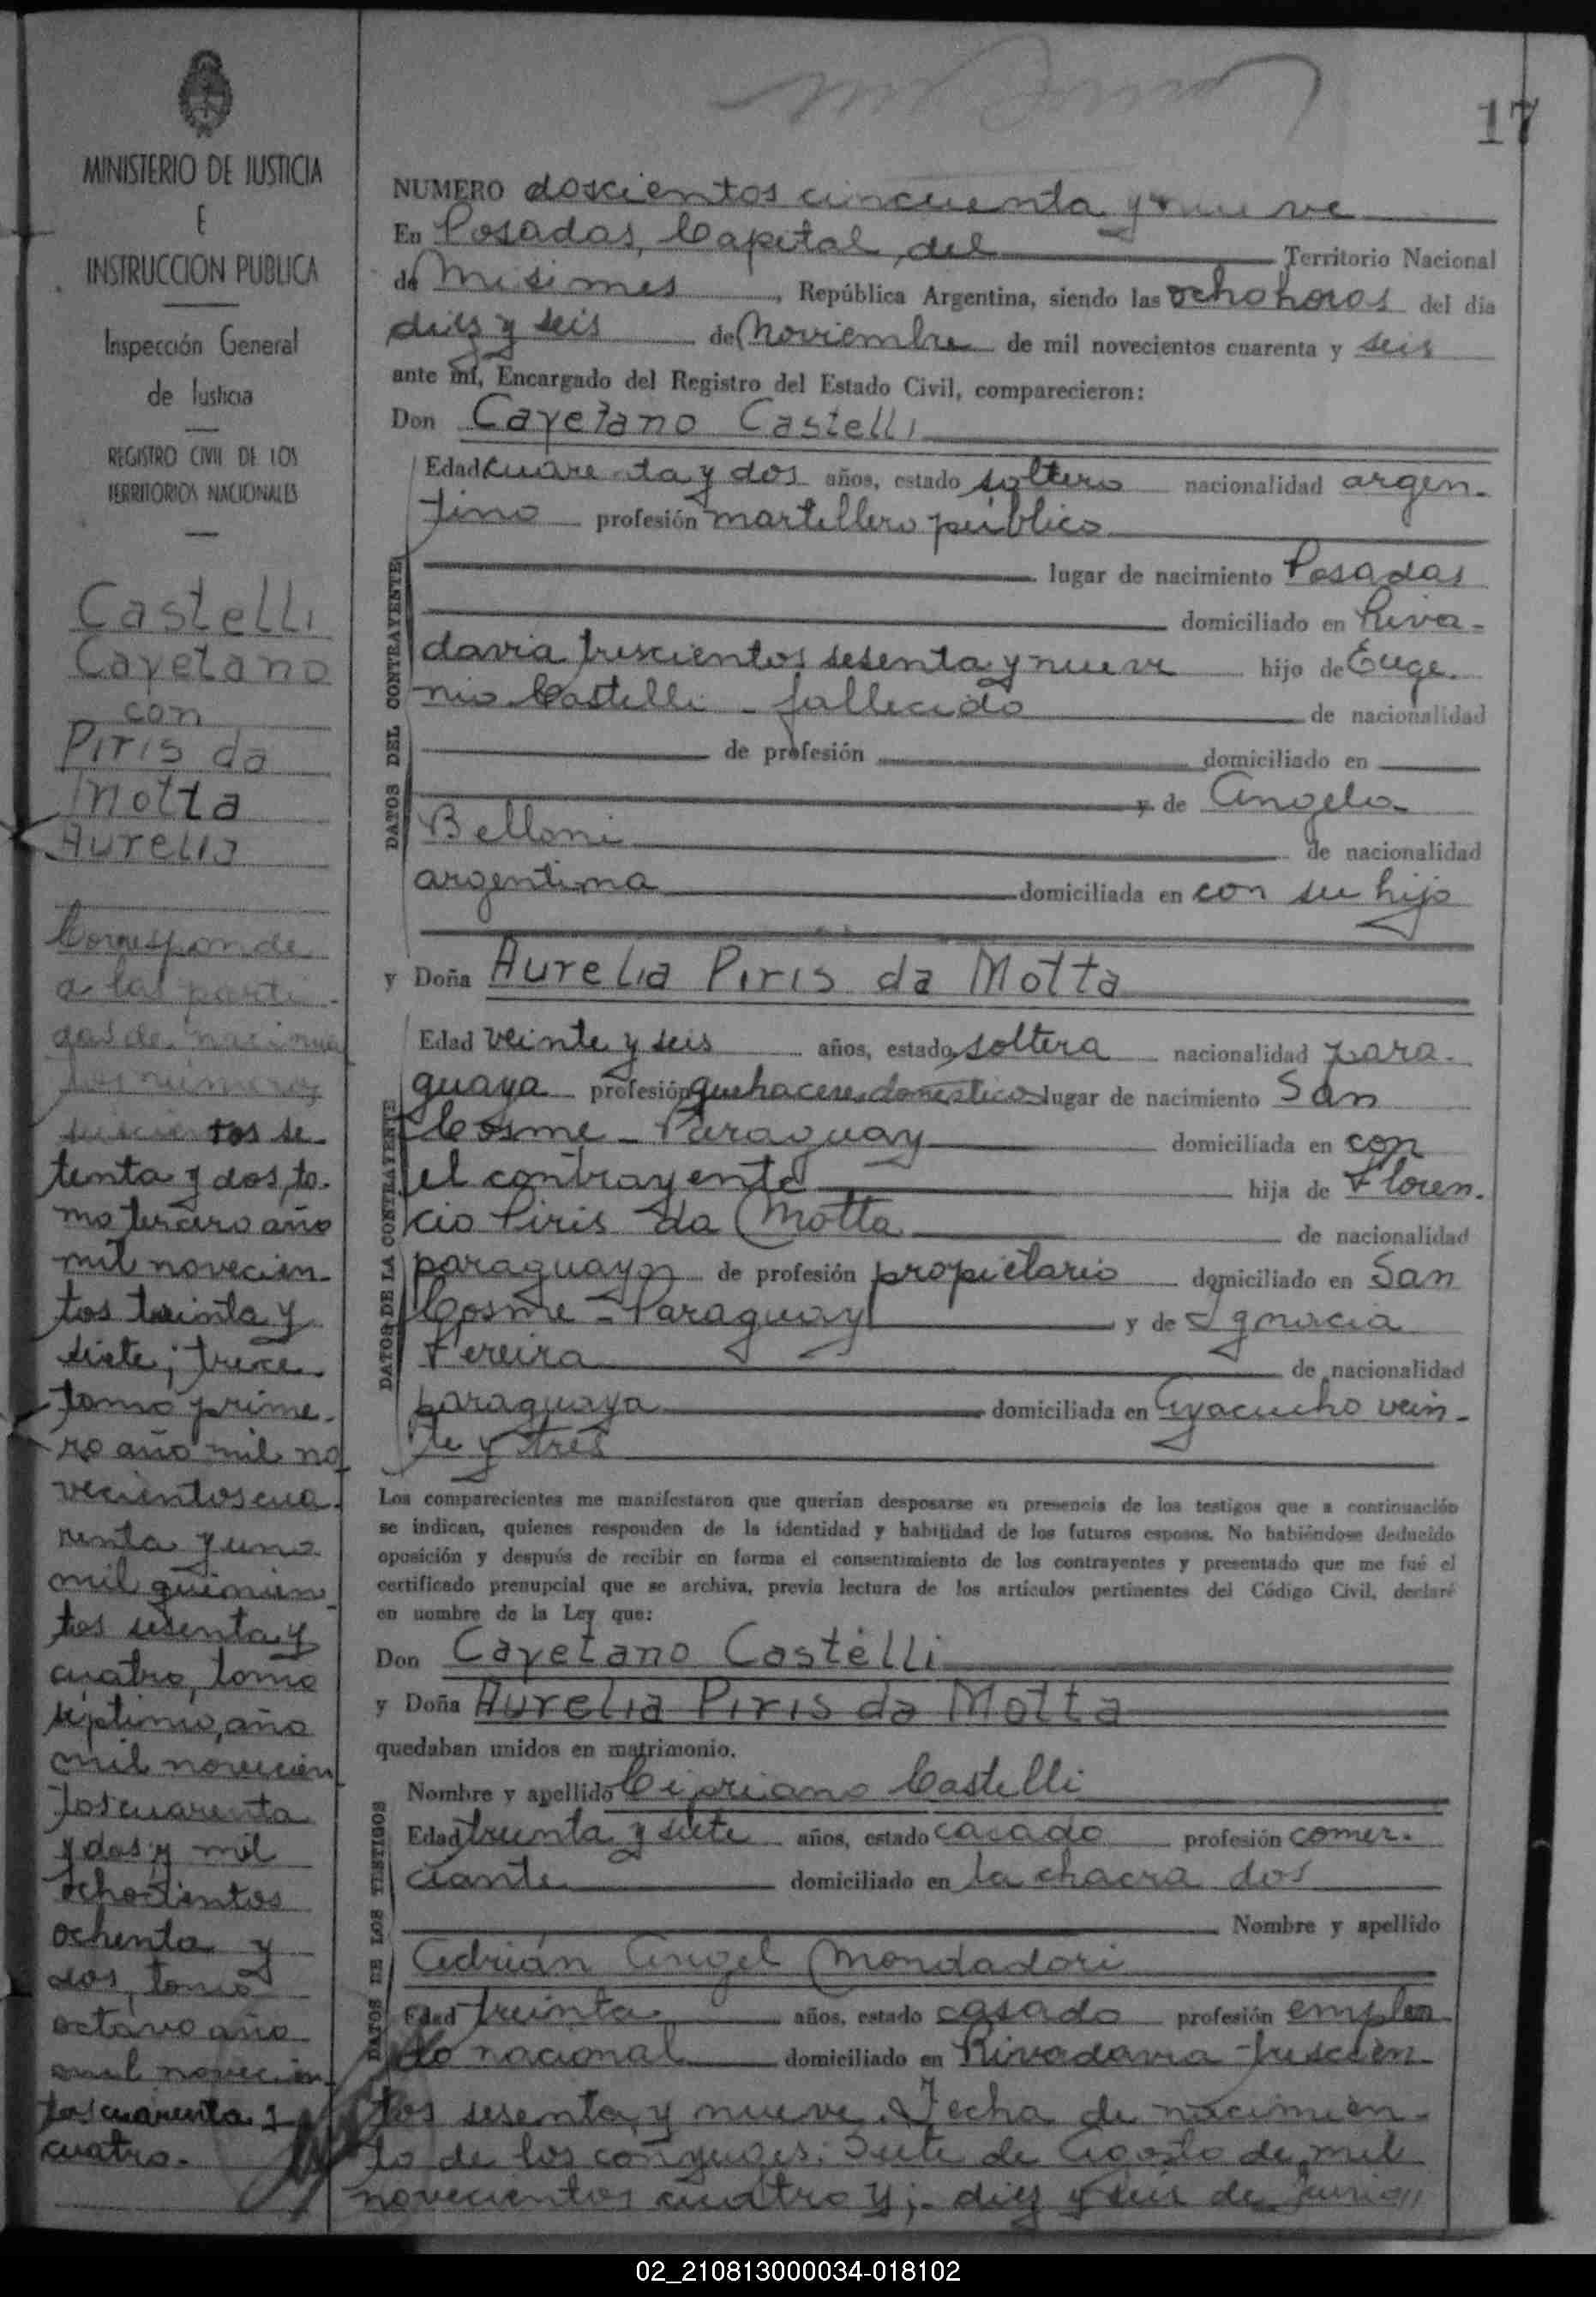 17
MINISTERIO DE JUSTICIA
E
INSTRUCCION PUBLICA
Inspección General
de Justicia
REGISTRO CIVIL DE LOS
TERRITORIOS NACIONALES
Castelli
Cayetano
con
Piris da
Motta
Aurelia
Corresponde
a las parti-
das de nacimien
tos números
seiscientos se-
tenta y dos, to-
mo tercero año
mil novecien-
tos treinta y
siete; trece
tomo prime-
ro año mil no
vecientos cua-
renta y uno
mil quinien-
tos sesenta y
cuatro, tomo
septimo, año
mil novecien
tos cuarenta
y dos y mil
ochocientos
ochenta y
dos, tomo
octavo año
mil novecien-
tos cuarenta y
cuatro.
NUMERO doscientos cincuenta y nueve
En Posadas, Capital del Territorio Nacional
de Misiones, República Argentina, siendo las ocho horas del día
diez y seis de Noviembre de mil novecientos cuarenta y seis
ante mí, Encargado del Registro del Estado Civil, comparecieron:
Don Cayetano Castelli
DATOS DEL CONTRAYENTE
Edad cuarenta y dos años, estado soltero nacionalidad argen-
tino profesión martillero público
lugar de nacimiento Posadas
domiciliado en Riva-
davia trescientos sesenta y nueve hijo de Euge-
nio Castelli - fallecido de nacionalidad
de profesión domiciliado en
y de Angela
Belloni de nacionalidad
argentina domiciliada en con su hijo
y Doña Aurelia Piris da Motta
DATOS DE LA CONTRAYENTE
Edad veinte y seis años, estado soltera nacionalidad para-
guaya profesión quehaceres domésticos lugar de nacimiento San
Cosme - Paraguay domiciliada en con
el contrayente hija de Floren-
cio Piris da Motta de nacionalidad
paraguayo de profesión propietario domiciliado en San
Cosme - Paraguay y de Ignacia
Fereira de nacionalidad
paraguaya domiciliada en Ayacucho vein-
te y tres
Los comparecientes me manifestaron que querían desposarse en presencia de los testigos que a continuación
se indican, quienes responden de la identidad y habilidad de los futuros esposos. No habiéndose deducido
oposición y después de recibir en forma el consentimiento de los contrayentes y presentado que me fué el
certificado prenupcial que se archiva, previa lectura de los artículos pertinentes del Código Civil, declaré
en nombre de la Ley que:
Don Cayetano Castelli
y Doña Aurelia Piris da Motta
quedaban unidos en matrimonio.
DATOS DE LOS TESTIGOS
Nombre y apellido Cipriano Castelli
Edad treinta y siete años, estado casado profesión comer-
ciante domiciliado en la chacra dos
Nombre y apellido
Adrián Angel Mondadori
Edad treinta años, estado casado profesión emplea
do nacional domiciliado en Rivadavia trescien-
tos sesenta y nueve. Fecha de nacimien-
to de los conyuges: Siete de Agosto de mil
novecientos cuatro y;- diez y seis de Junio
02_210813000034-018102